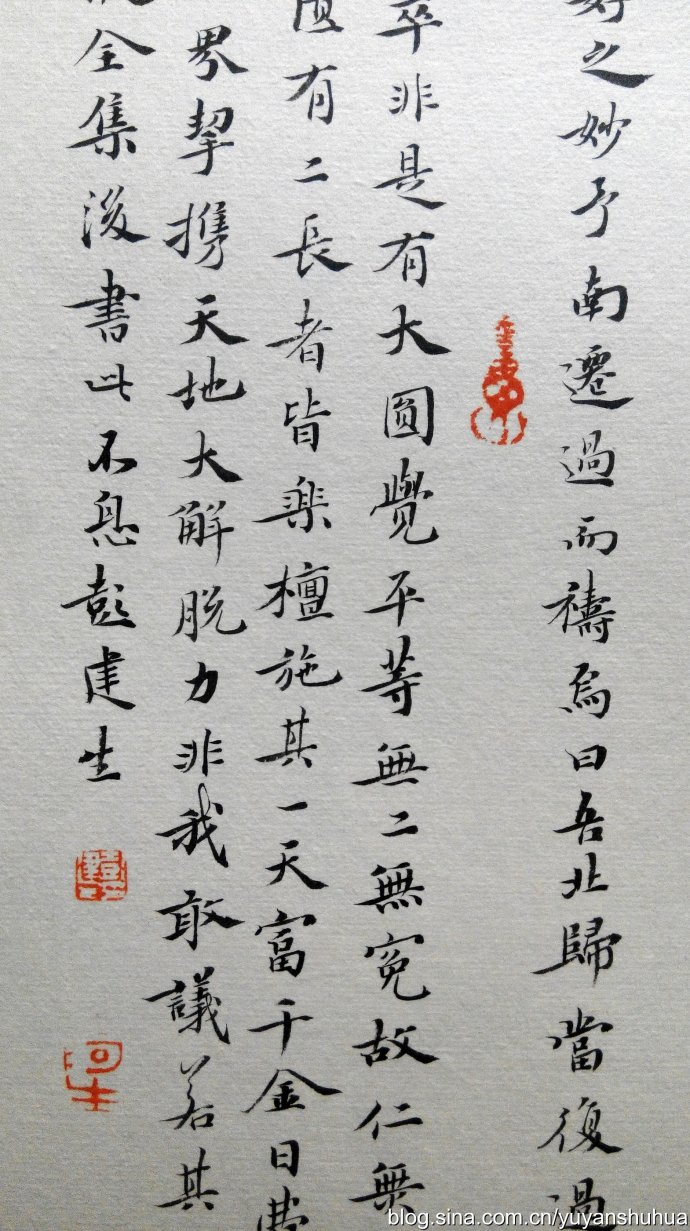 之妙予南遷過而禱焉曰吾北歸當復過
卒非是有大圓覺平等無二無冤故仁無
有二長者皆樂檀施其一天富千金日費
界挈攜天地大解脱力非我敢議若其
全集後書此不息彭建生
blog.sina.com.cn/yuyanshuhua